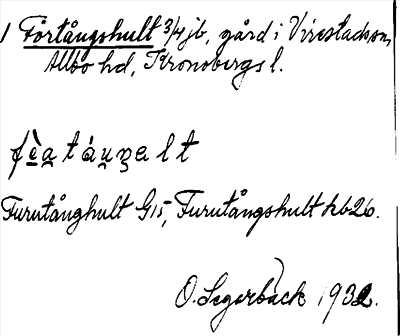 1 Förtångshult 3/4 jb, gård i Virestads sn,
Allbo hd, Kronobergs l.
Furutånghult G15, Furutångshult kb 26.
O. Segerbäck 1932.